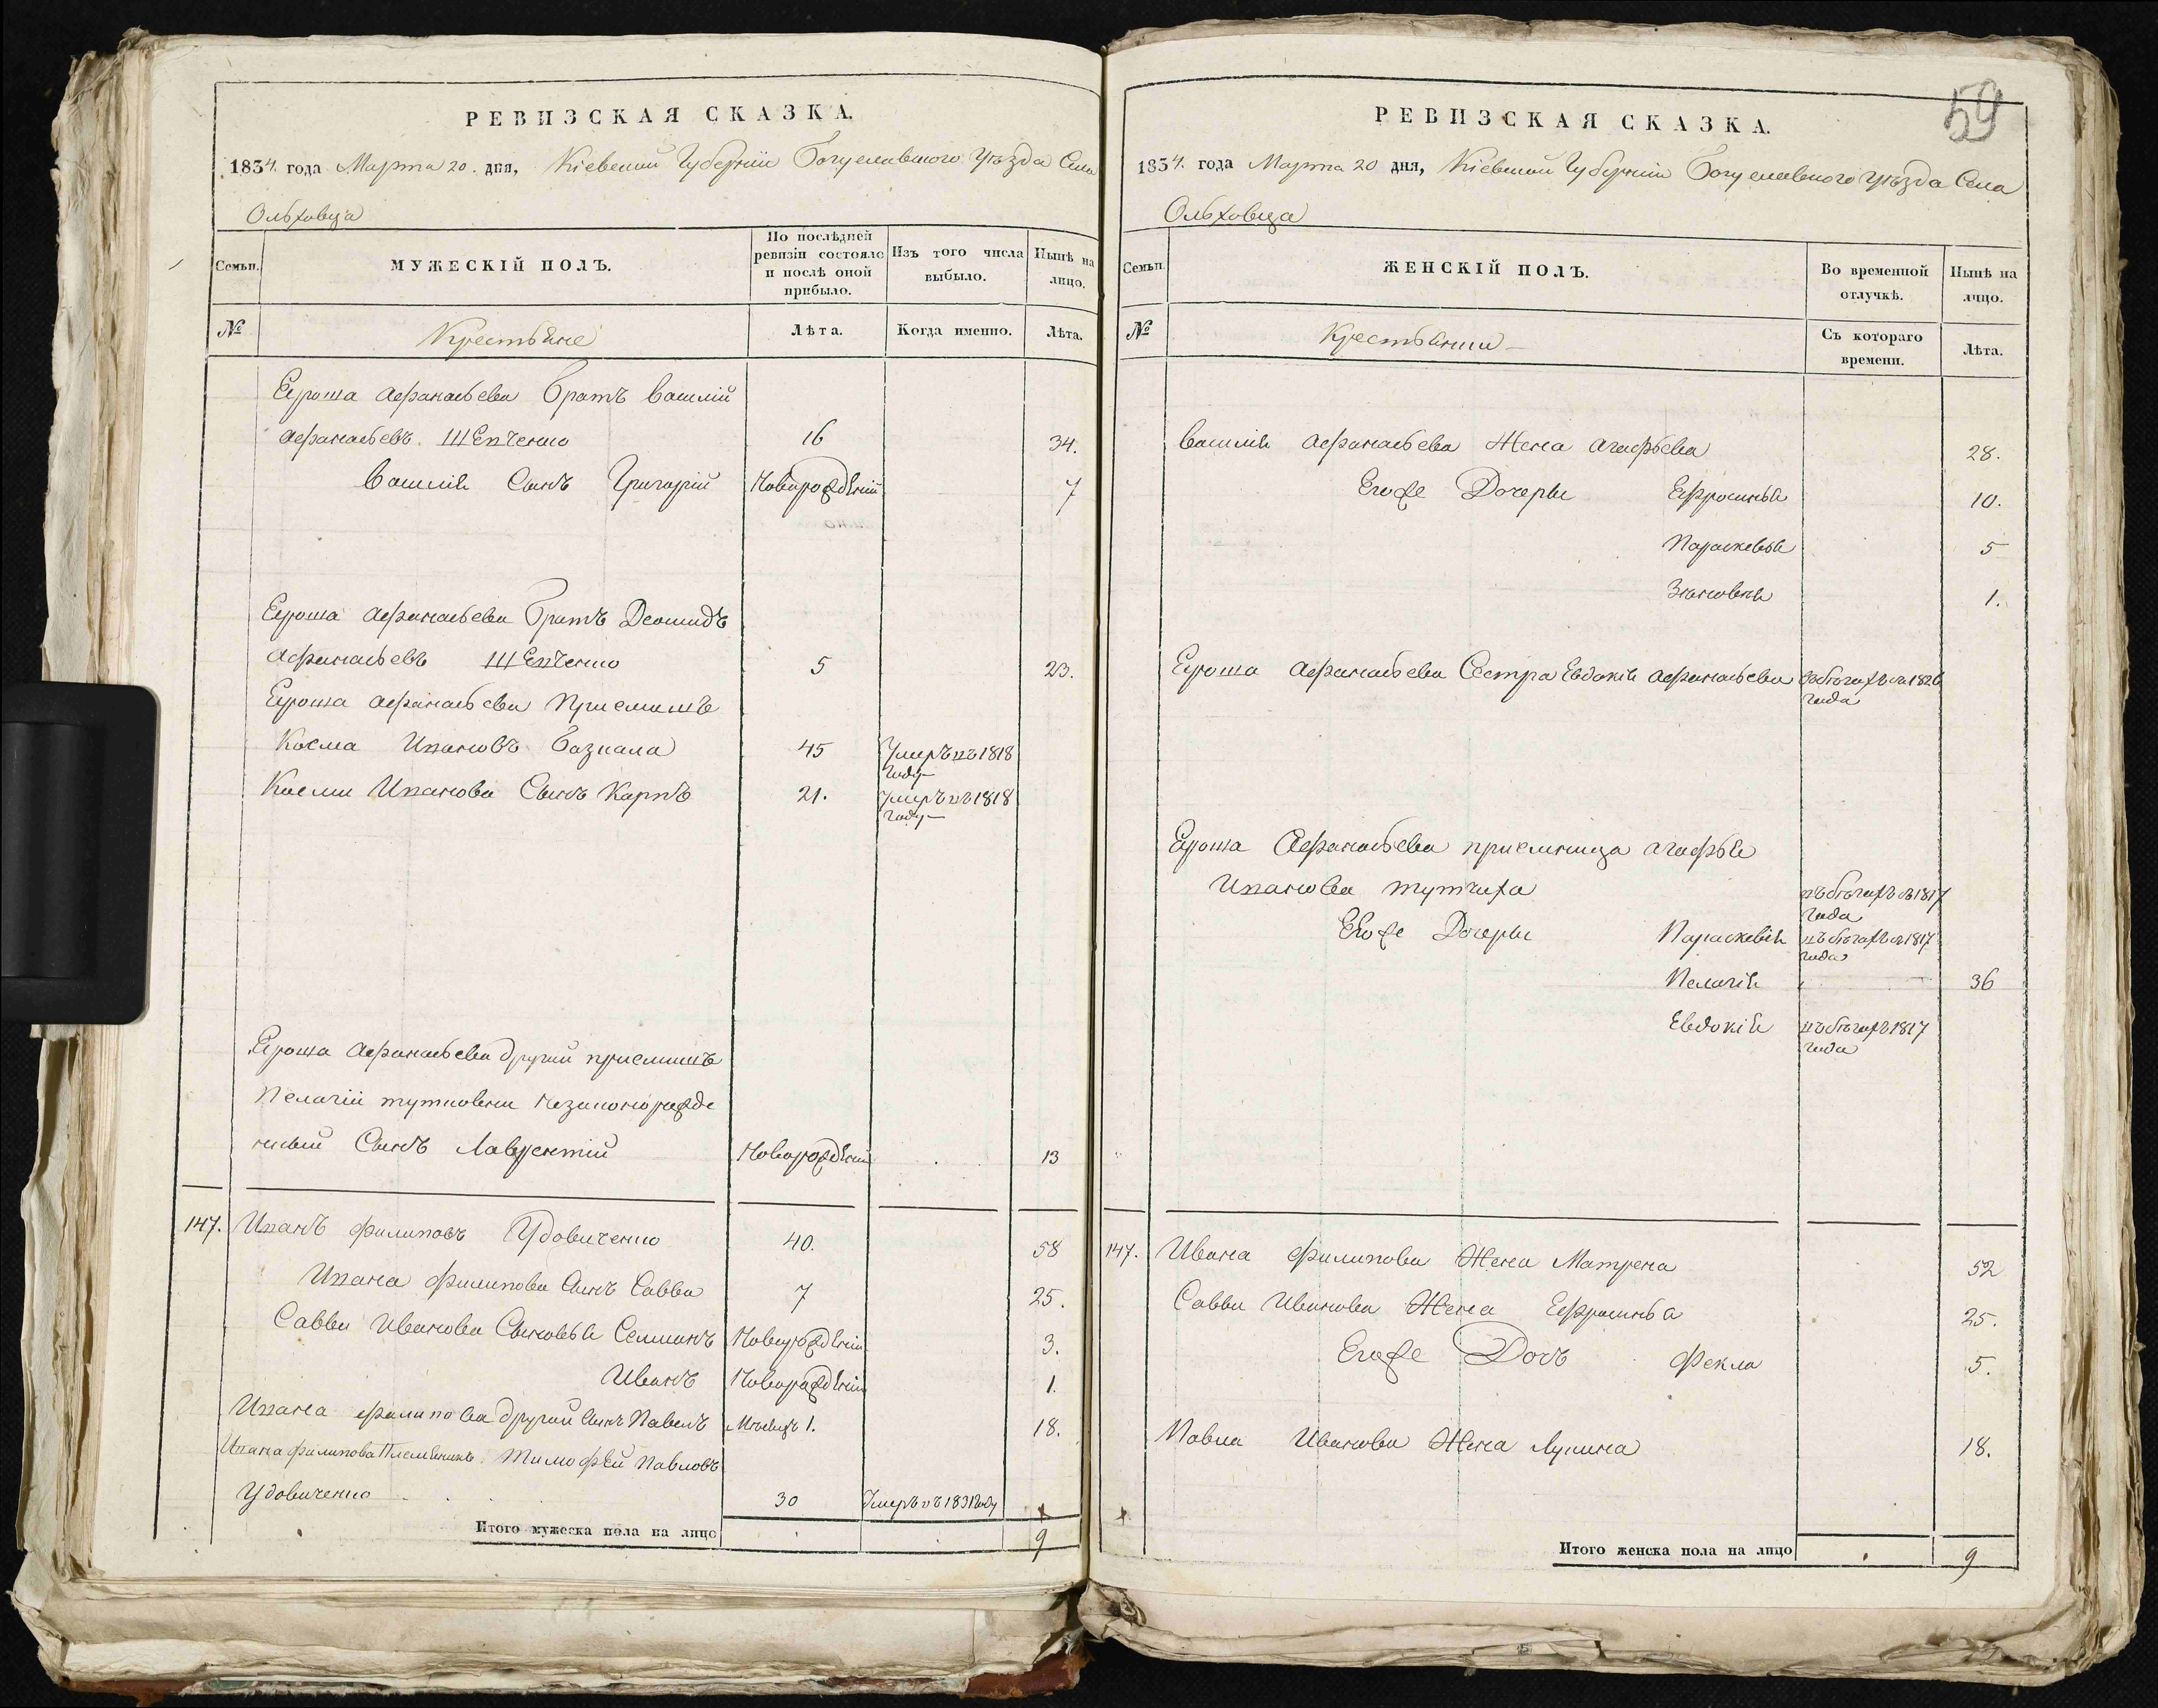 РЕВИЗСКАЯ СКАЗКА.
1834. года Марта 20. дня, Кіевской Губерніи Богуславского Уѣзда Села
Ольховца
Семьи.
МУЖЕСКІЙ ПОЛЪ.
По послѣдней
ревизіи состояло
и послѣ оной
прибыло.
Изъ того числа
выбыло.
Нынѣ на
лицо.
№
Крестьяне
Лѣта.
Когда именно.
Лѣта.
Ероша Афанасьева Братъ Василій
Афанасьевъ Шевченко 16 34.
Василія Сынъ Григорій Новорожденій 7
Ероша Афанасьева Братъ Деомидъ
Афанасьевъ 5 23.
Ероша Афанасьева Приемышъ
Косма Ивановъ 45 Умеръ въ 1818
году
Космы Иванова Сынъ Карпъ 21. Умеръ въ 1818
году
Ероша Афанасьева другий приемышъ
Пелагіи тутковны незаконорожде
нный Сынъ Лаврентій Новорожденій 13
147. Иванъ Филиповъ Удовиченко 40. 58
Ивана Филипова Сынъ Савва 7 25.
Саввы Иванова Сыновья Семионъ Новорожденій 3.
Иванъ Новорожденій 1.
Ивана Филипова другий Сынъ Павелъ Мѣсяцъ 1. 18.
Ивана Филипова Племеникъ Тимофей Павловъ
Удовиченко 30 Умеръ въ 1831 году
Итого мужеска пола на лицо 9
59
РЕВИЗСКАЯ СКАЗКА.
1834. года Марта 20 дня, Кіевской Губерніи Богуславского Уѣзда Села
Ольховца
Семьи.
ЖЕНСКІЙ ПОЛЪ.
Во временной
отлучкѣ.
Нынѣ на
лицо.
№
Крестьянки
Съ котораго
времени.
Лѣта.
Василія Афанасьева Жена Агафьева 28.
Егоже Дочеры Ефросинья 10.
Параскевья 5
Зиновья 1.
Ероша Афанасьева Сестра Евдокія Афанасьева въ бѣгахъ съ 1826
года
Ероша Афанасьева приемница Агафья
Иванова тутчиха въ бѣгахъ съ 1817
года
Егоже Дочеры Параскевія въ бѣгахъ съ 1817
года
Пелагія 36
Евдокія въ бѣгахъ 1817
года
147. Ивана Филипова Жена Матрена 52
Саввы Иванова Жена Ефросинья 25.
Егоже Дочъ Фекла 5.
Павла Иванова Жена Лукина 18.
Итого женска пола на лицо 9